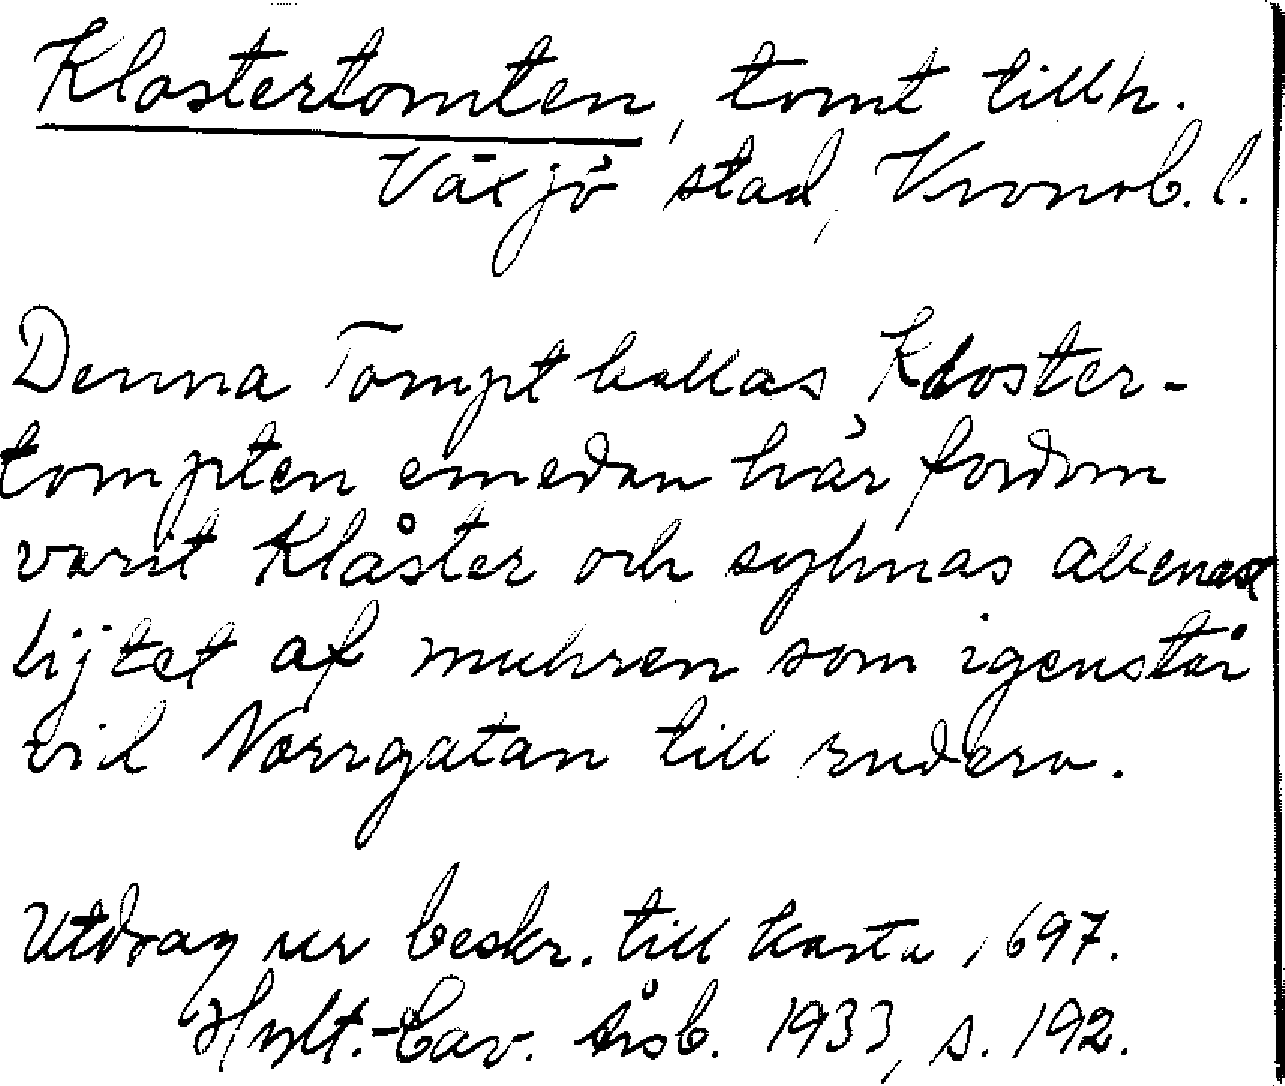 Klostertomten, tomt tillh.
Växjö stad, Kronob. l.
Denna Tompt kallas Kloster-
tompten emedan här fordom
varit Klåster och syhnas allenast
lijtet af muhren som igenstår
vid Norrgatan till rudera.
Utdrag ur beskr. till karta 1697.
Hylt.-Cav. årsb. 1933, s. 192.